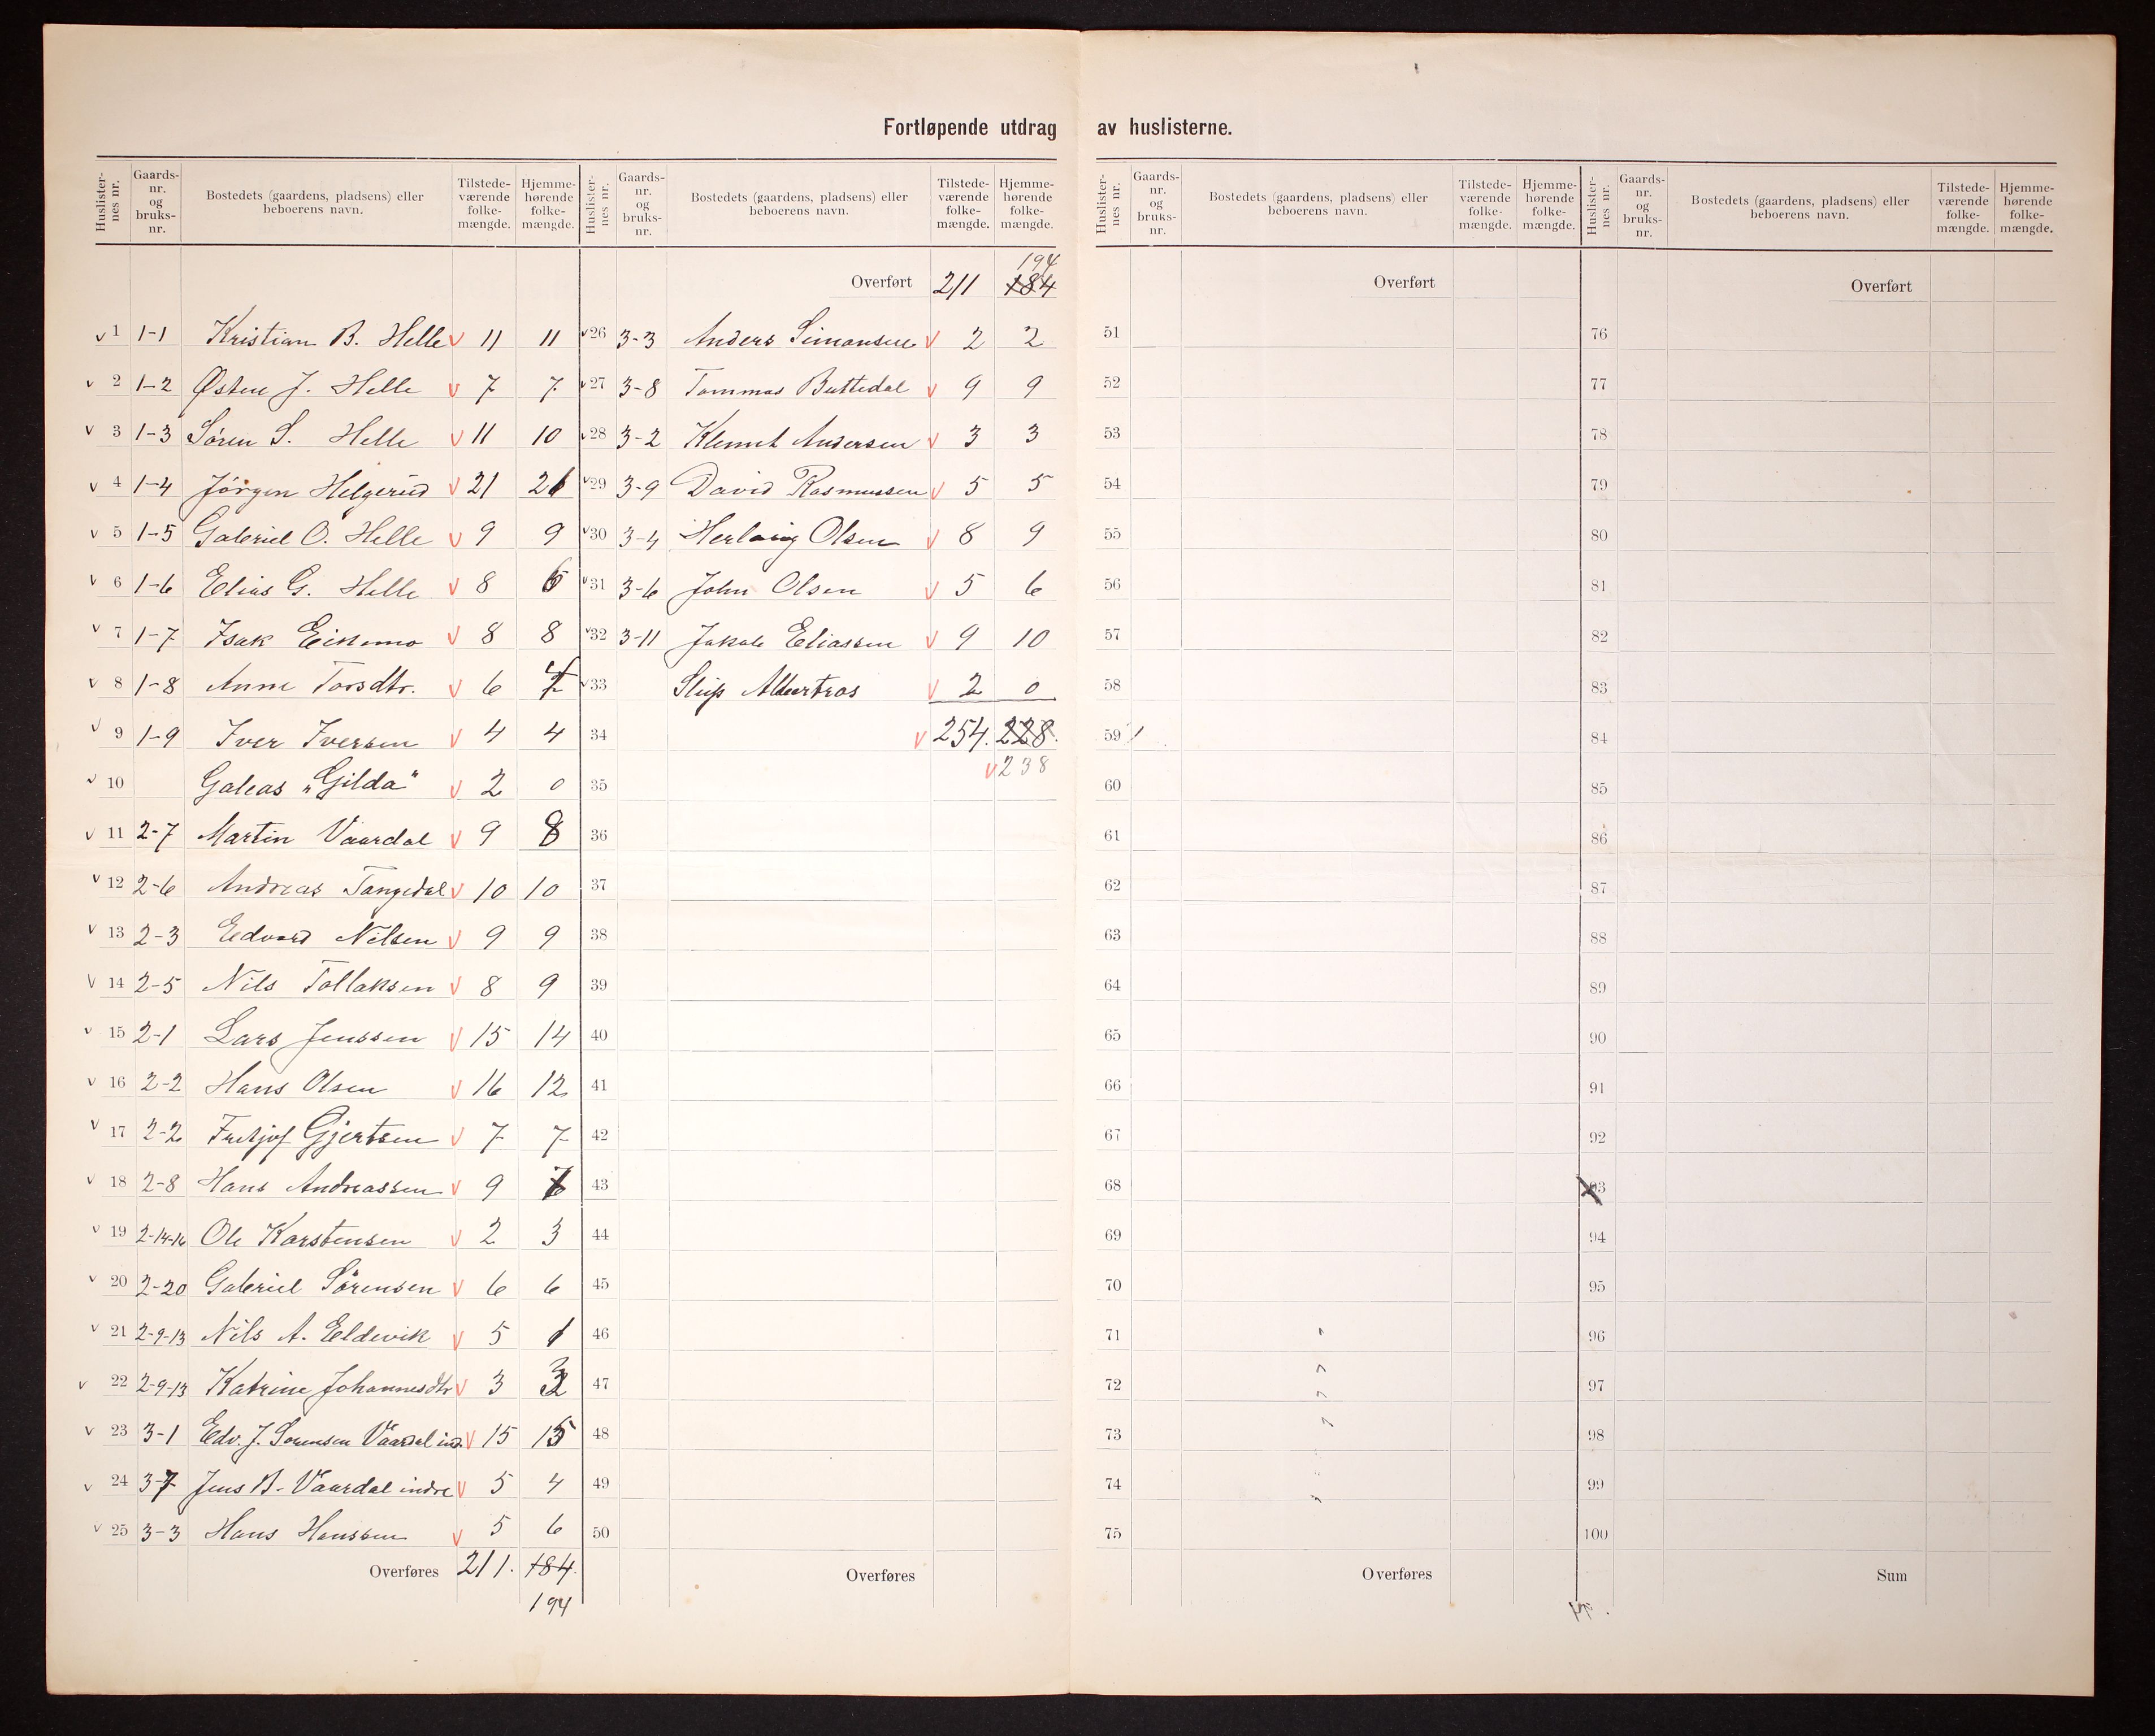 Fortløpende utdrag av huslisterne.
Huslisternes nr. Gaards-nr. og bruks-nr. Bostedets (gaardens, pladsens) eller beboerens navn. Tilstedeværende folkemængde. Hjemmehørende folkemængde.
v 1 1-1 Kristian B. Helle v 11 11
v 2 1-2 Østen J. Helle v 7 7
v 3 1-3 Søren S. Helle v 11 10
v 4 1-4 Jörgen Helgerud v 21 21
v 5 1-5 Gabriel O. Helle v 9 9
v 6 1-6 Elias G. Helle v 8 6
v 7 1-7 Isak Eikemo v 8 8
v 8 1-8 Anne Torsdtr. v 6 7
v 9 1-9 Iver Iversen v 4 4
v 10 Galeas „Gilda" v 2 0
v 11 2-7 Martin Vaardal v 9 8
v 12 2-6 Andreas Tangedal v 10 10
v 13 2-3 Edvard Nilsen v 9 9
v 14 2-5 Nils Tollaksen v 8 9
v 15 2-1 Lars Jenssen v 15 14
v 16 2-2 Hans Olsen v 16 12
v 17 2-2 Fritjof Gjertsen v 7 7
v 18 2-8 Hans Andreassen v 9
v 19 2-14-16 Ole Karstensen v 2 3
v 20 2-20 Gabriel Sörensen v 6 6
v 21 2-9-13 Nils A. Eldevik v 5 1
v 22 2-9-13 Katrine Johannesdtr v 3 3
v 23 3-1 Edv. J. Sørensen Vaardal ind. v 15 15
v 24 3-7 Jens B. Vaardal indre v 5 4
v 25 3-3 Hans Hanssen v 5 6
Overføres 211. 184.
194
Huslisternes nr. Gaards-nr. og bruks-nr. Bostedets (gaardens, pladsens) eller beboerens navn. Tilstedeværende folkemængde. Hjemmehørende folkemængde.
194
Overført 211 184
v 26 3-3 Anders Simonsen v 2 2
v 27 3-8 Tommas Buttedal v 9 9
v 28 3-2 Klemet Andersen v 3 3
v 29 3-9 David Rasmussen v 5 5
v 30 3-4 Herlaug Olsen v 8 9
v 31 3-6 John Olsen v 5 6
v 32 3-11 Jakob Eliassen v 9 10
v 33 Slup Albertros v 2 0
34 v 254. 228.
v 238
35
36
37
38
39
40
41
42
43
44
45
46
47
48
49
50
Overføres
Huslisternes nr. Gaards-nr. og bruks-nr. Bostedets (gaardens, pladsens) eller beboerens navn. Tilstedeværende folkemængde. Hjemmehørende folkemængde.
Overført
51
52
53
54
55
56
57
58
59
60
61
62
63
64
65
66
67
68
69
70
71
72
73
74
75
Overføres
Huslisternes nr. Gaards-nr. og bruks-nr. Bostedets (gaardens, pladsens) eller beboerens navn. Tilstedeværende folkemængde. Hjemmehørende folkemængde.
Overført
76
77
78
79
80
81
82
83
84
85
86
87
88
89
90
91
92
93
94
95
96
97
98
99
100
Sum